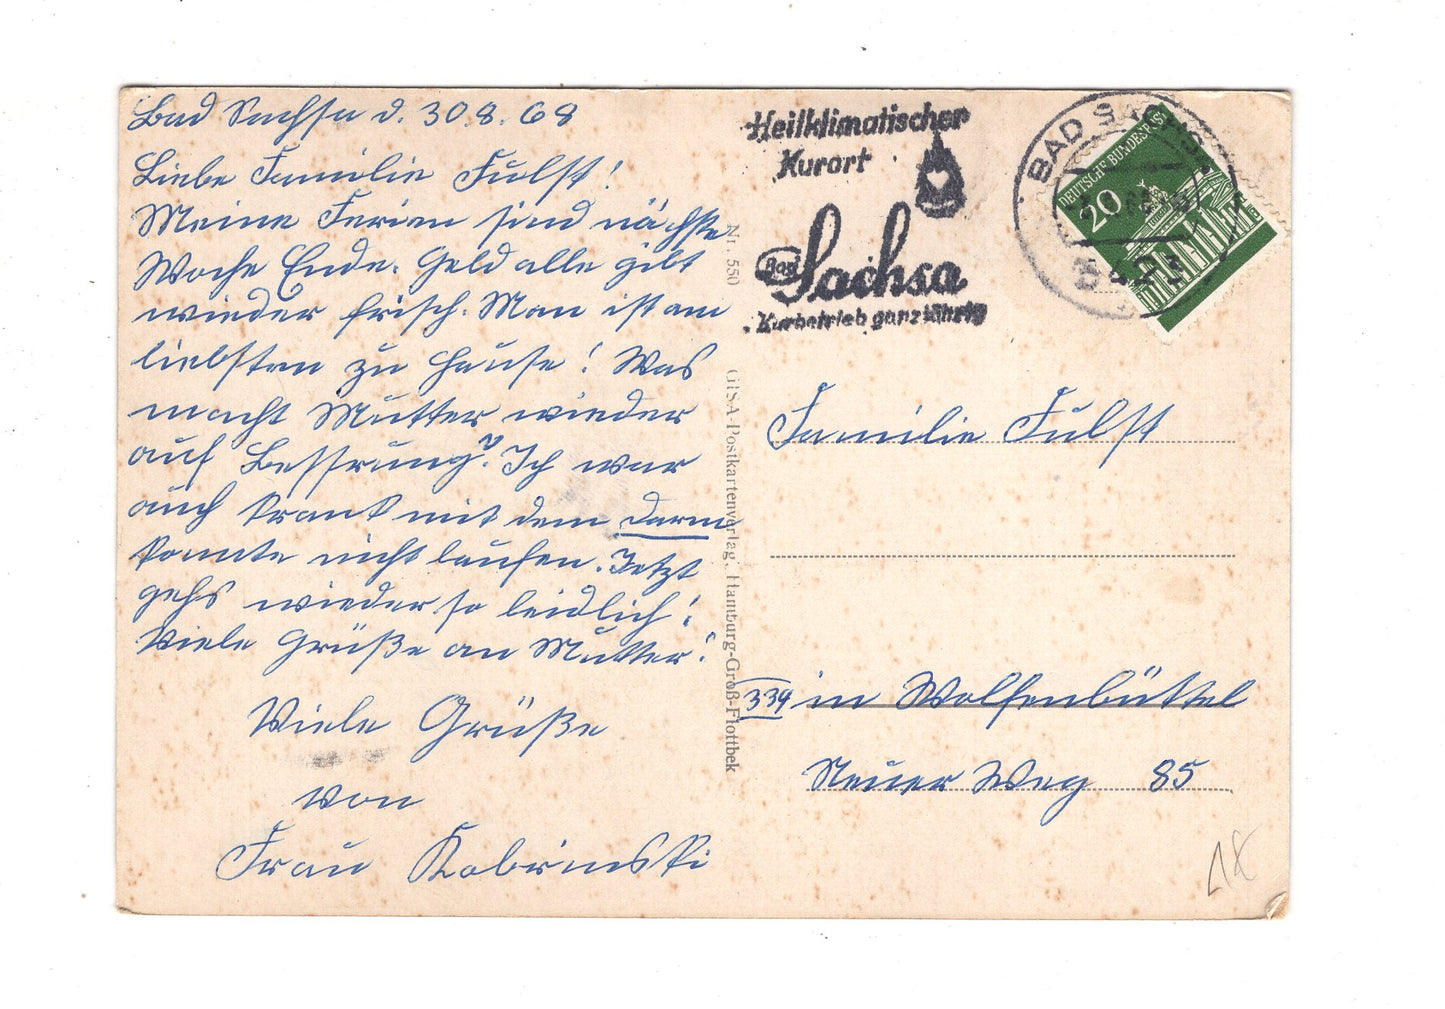 Bad Sachsa d. 30.8.68
Liebe Familie Fulst!
Meine Ferien sind nächste
Woche Ende. Geld alle gibt
wieder frisch. Man ist am
liebsten zu Hause! Was
macht Mutter wieder
auf Bessrung? Ich war
auch krank mit dem Darm
konnte nicht laufen. Jetzt
gehs wieder so leidlich!
Viele Grüße an Mutter!
Viele Grüße
von
Frau Kobrinski
Nr. 550
GISA-Postkartenverlag, Hamburg-Groß-Flottbek
Heilklimatischer
Kurort
Bad Sachsa
Kurbetrieb ganzjährig
BAD SACHSA
DEUTSCHE BUNDESPOST
20
Familie Fulst
339 in Wolfenbüttel
Neuer Weg 85
18